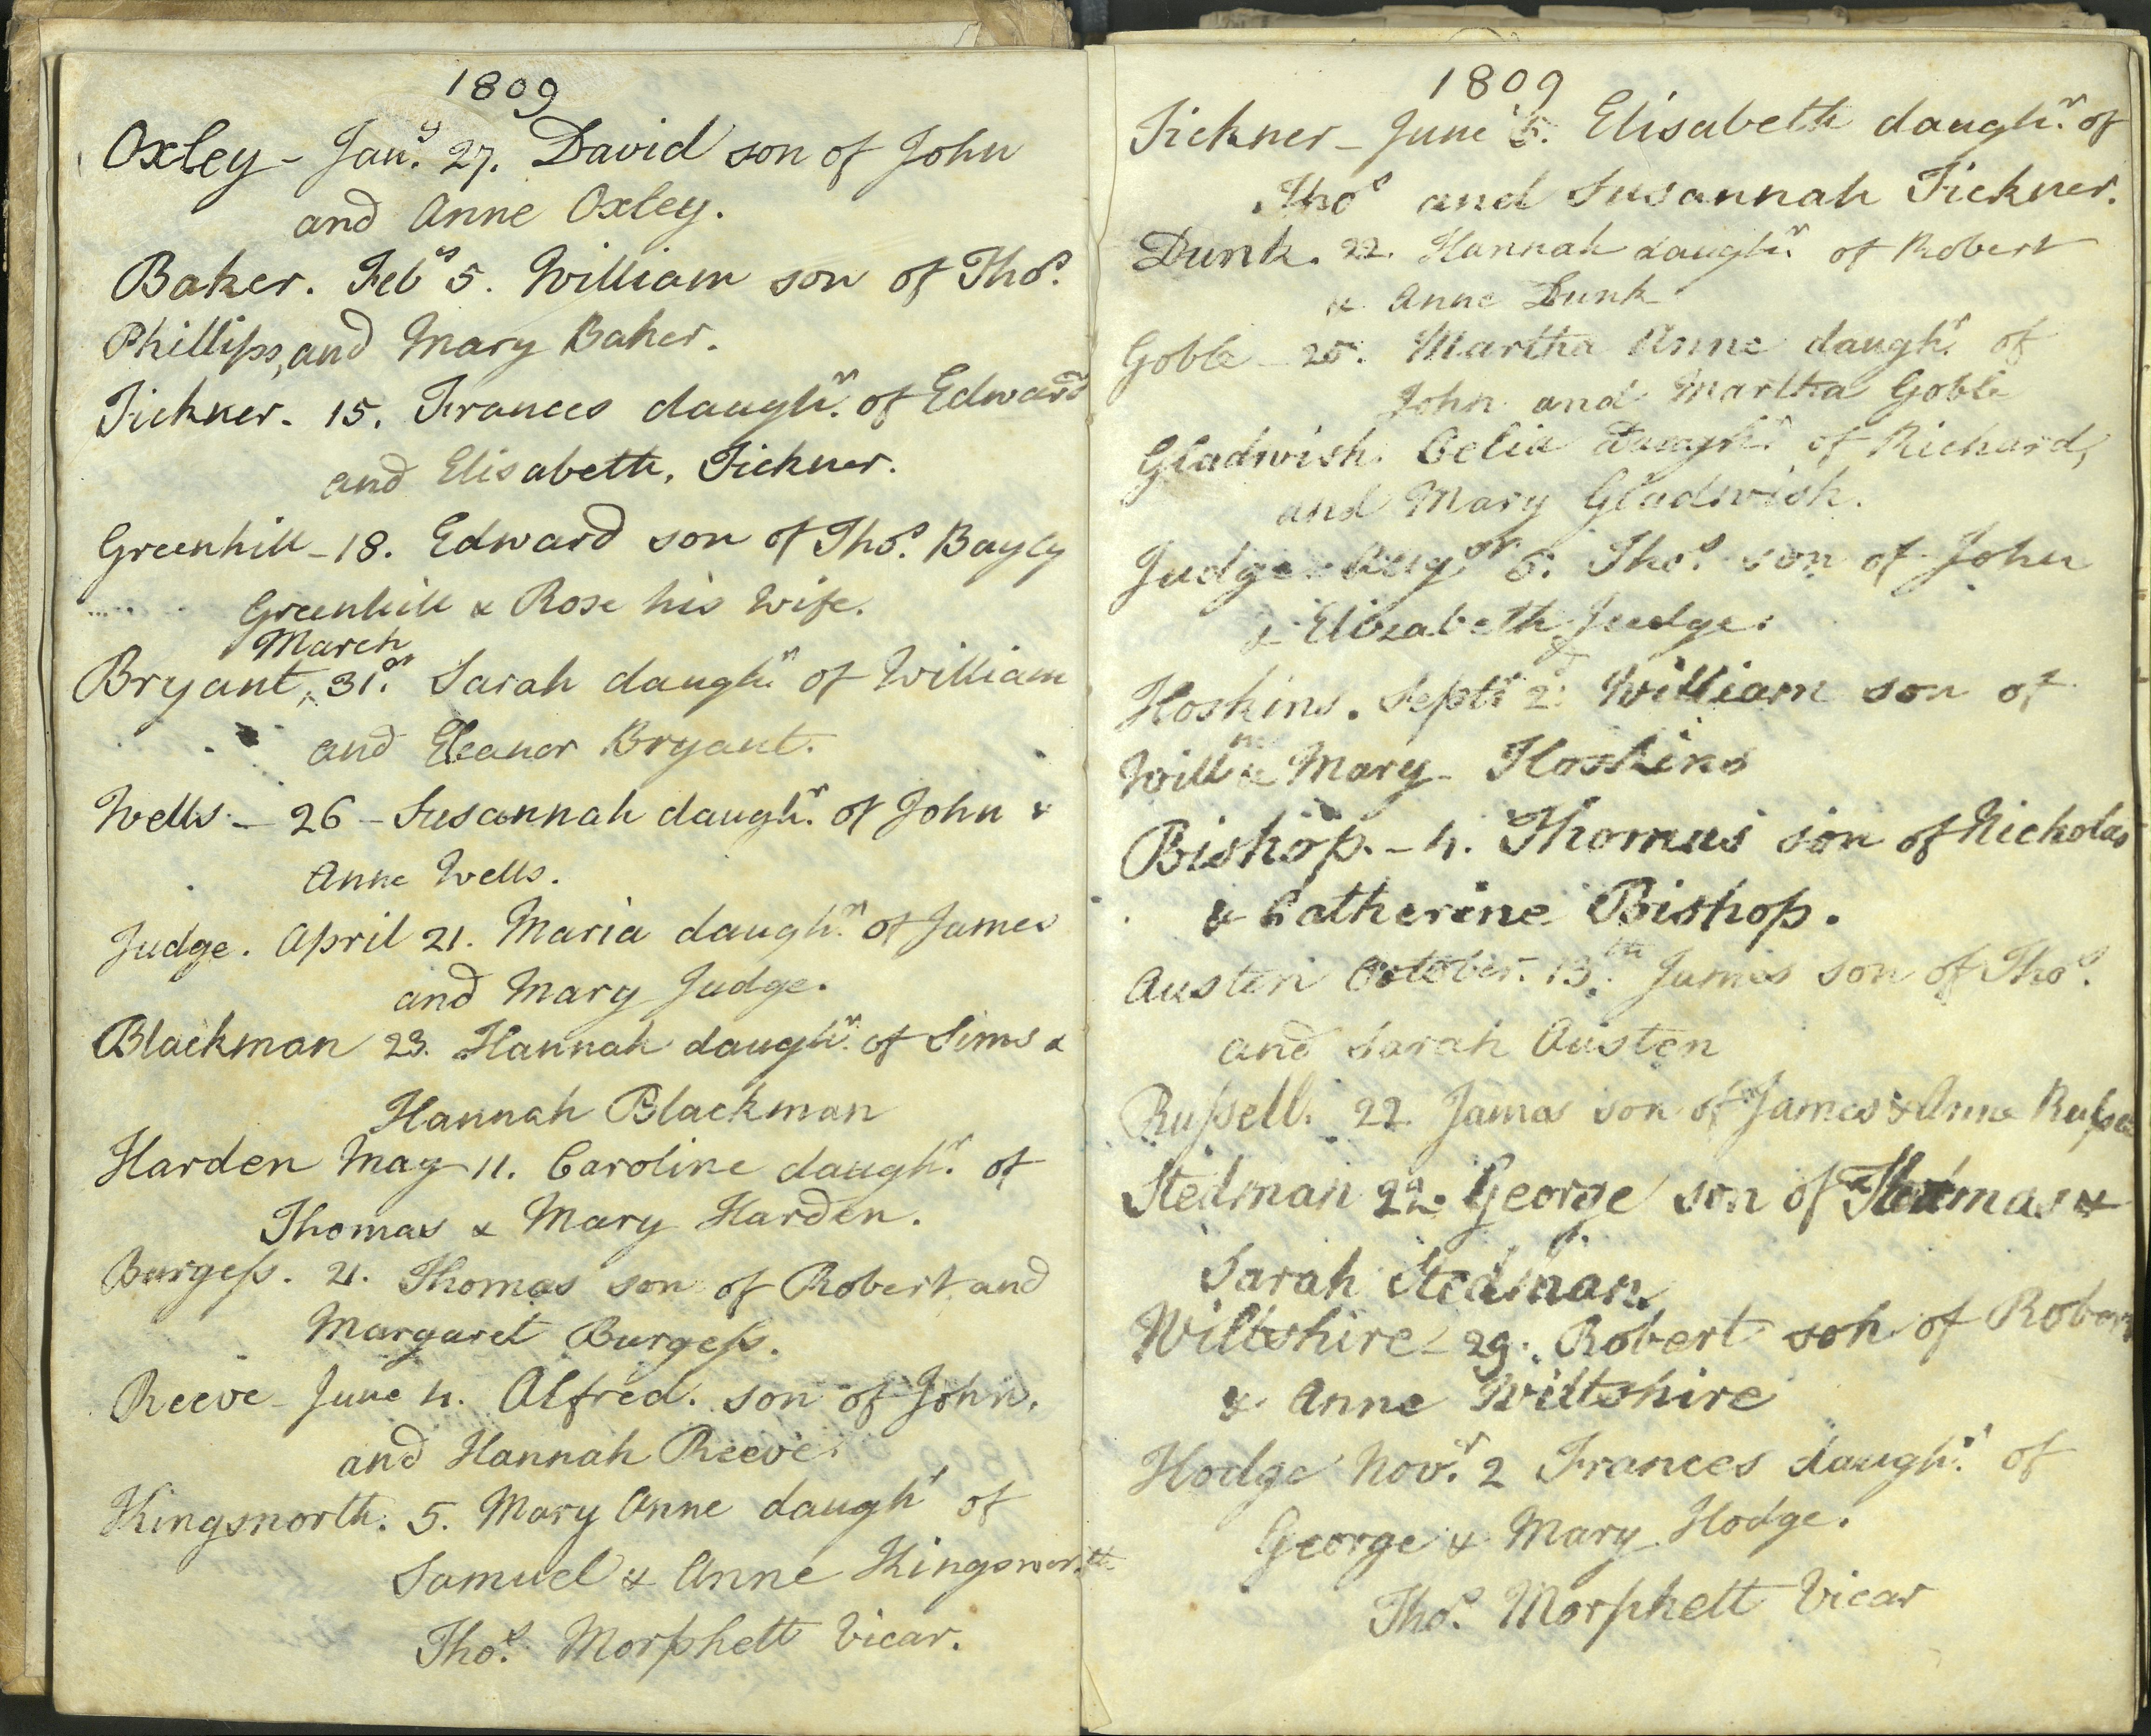 1809
Oxley - Jany. 27. David son of John
and Anne Oxley.
Baker. Feby 5. William son of Thos.
Phillips, and Mary Baker.
Tickner. 15. Frances daughr. of Edward
and Elisabeth, Tickner.
Greenhill - 18. Edward son of Thos. Bayly
Greenhill & Rose his Wife.
March
Bryant, 31st. Sarah daughr. of William
and Eleanor Bryant.
Wells. - 26 - Susannah daughr. of John &
Anne Wells.
Judge. April 21. Maria daughr. of James
and Mary Judge.
Blackman 23. Hannah daughr. of Sims &
Hannah Blackman
Harden May 11. Caroline daughr. of
Thomas & Mary Harden.
Burgess. 21. Thomas son of Robert and
Margaret Burgess.
Reeve - June 4. Alfred. son of John.
and Hannah Reeve.
Kingsnorth. 5. Mary Anne daughr of
Samuel & Anne Kingsnorth
Thos. Morphett Vicar.
1809
Tickner - June 5. Elisabeth daughr. of
Thos and Susannah Tickner.
Dunk. 22. Hannah daughr. of Robert
& Anne Dunk
Goble - 25. Martha Anne daughr. of
John and Martha Goble
Gladwish. Celia daughr. of Richard,
and Mary Gladwish.
Judge - Augst 6. Thos. son of John
& Elizabeth Judge.
Hoskins. Septr 2d. William son of
Willm & Mary Hoskins
Bishop. - 4. Thomas son of Nicholas
& Catherine Bishop.
Austen October. 13th. James son of Thos.
and Sarah Austen
Russell. 22 James son of James & Anne Russell
Stedman 22. George son of Thomas &
Sarah Stedman.
Wiltshire - 29. Robert son of Robert
& Anne Wiltshire
Hodge Novr. 2 Frances daughr. of
George & Mary Hodge.
Thos. Morphett Vicar